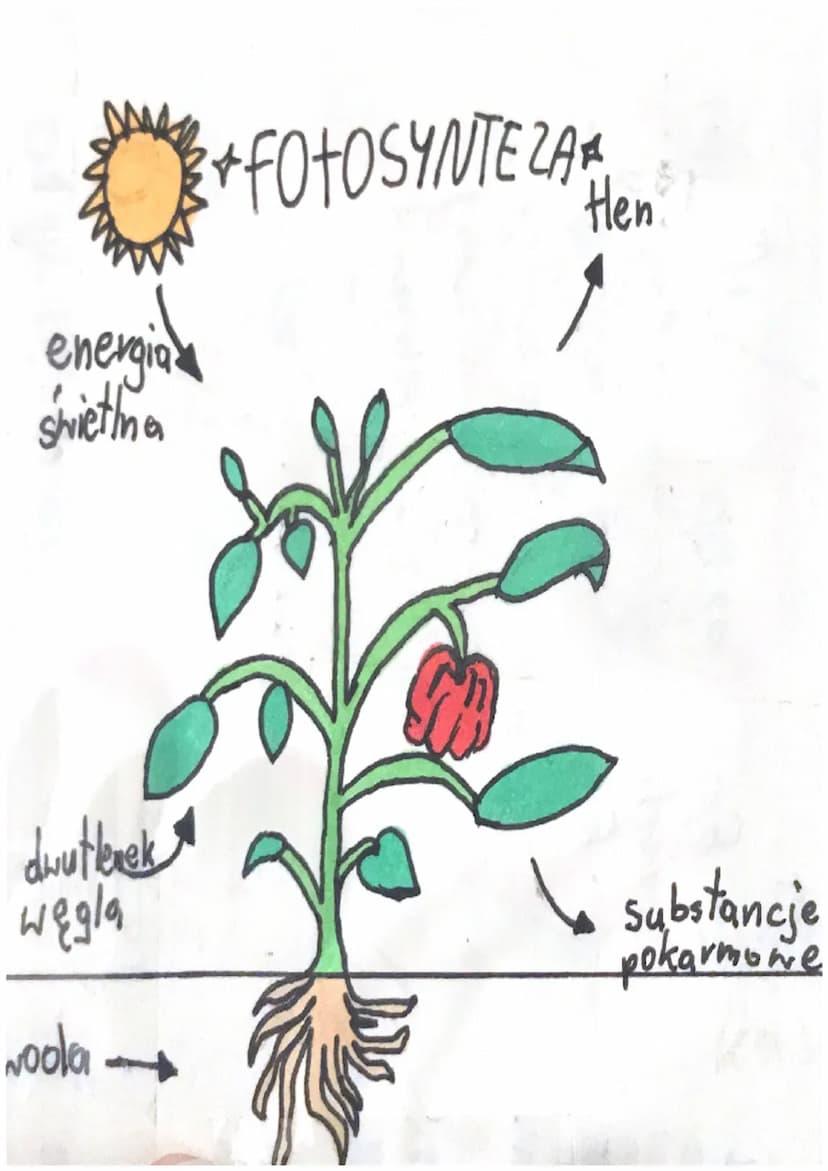 FOTOSYNTEZA
tlen
energia
świetlna
dwutlenek
węgla
substancje
pokarmowe
woda